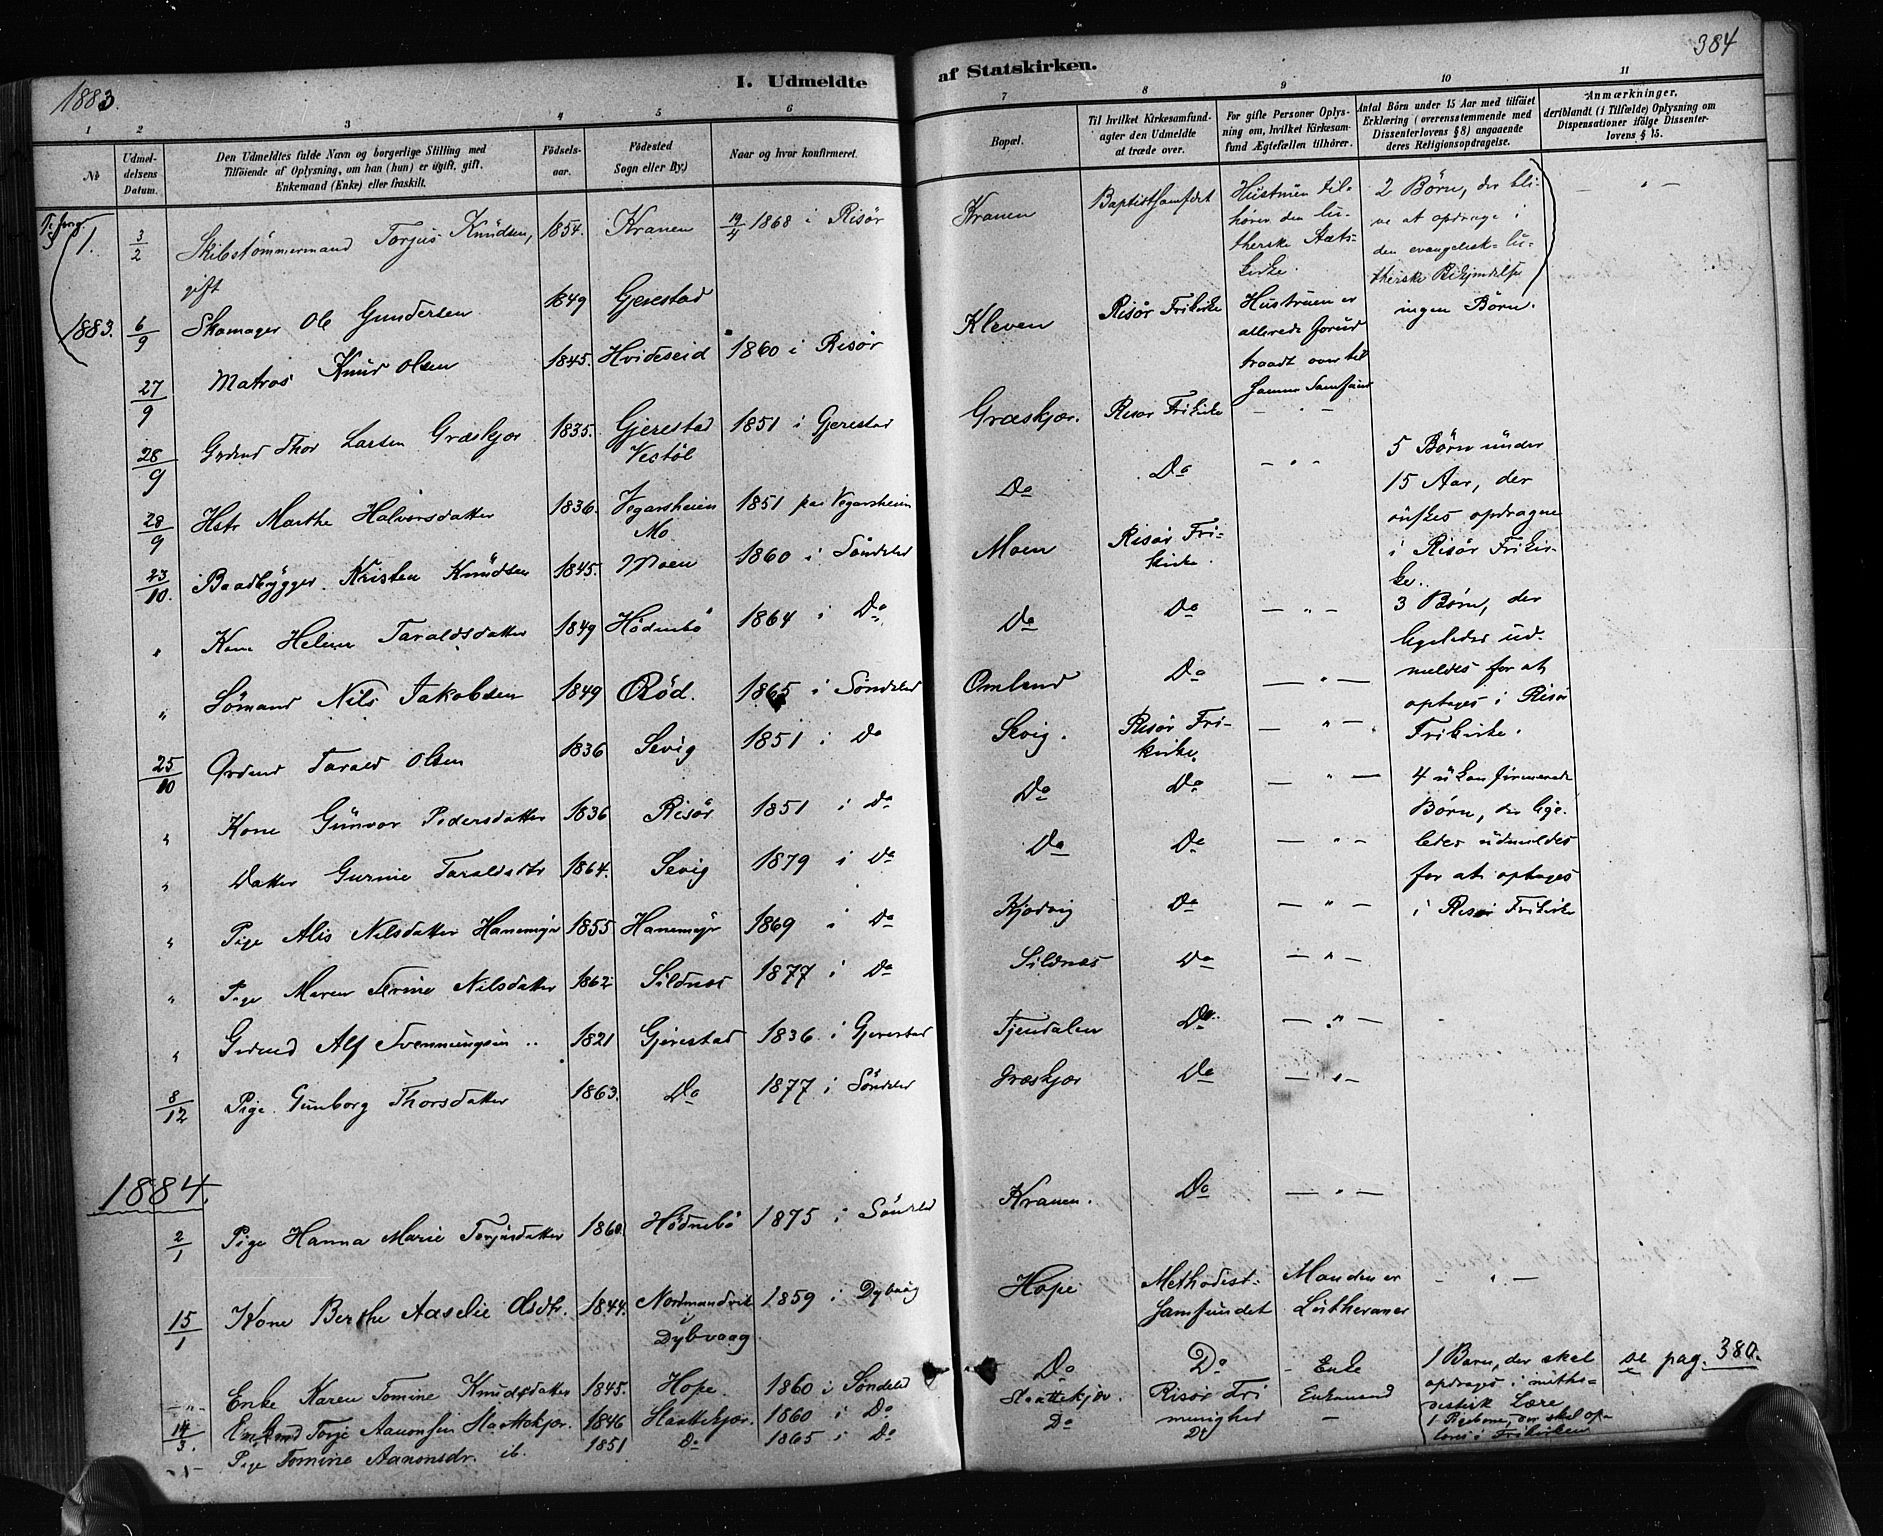 1883.
I. Udmeldte
af Statskirken.
384
1 2 3 4 5 6 7 8 9 10 11
No
Udmel-
delsens
Datum.
Den Udmeldtes fulde Navn og borgerlige Stilling med
Tilföiende af Oplysning, om han (hun) er ugift, gift,
Enkemand (Enke) eller fraskilt.
Födsels-
aar.
Födested
Sogn eller By.)
Naar og hvor konfirmeret.
Bopæl.
Til hvilket Kirkesamfund-
agter den Udmeldte
at træde over.
For gifte Personer Oplys-
ning om, hvilket Kirkesam-
fund Ægtefællen tilhörer.
Antal Börn under 15 Aar med tilföiet
Erklæring (overensstemmende med
Dissenterlovens § 8) angaaende
deres Religionsopdragelse.
Anmærkninger,
deriblandt (i Tilfælde) Oplysning om
Dispensationer ifölge Dissenter-
lovens § 15.
1. 3/2 Skibstømmermand Torjus Knudsen, gift 1854. Kranen 19/4 1868 i Risør Kranen Baptistsamfdet Hustruen til-
hører den lu-
therske Stats-
kirke. 2 Børn, der bli-
ve at opdrage i
den evangelisk-lu-
therske Bekjendelse — " —
1883. 6/9 Skomager Ole Gundersen 1849 Gjerestad Kleven Risør Frikirke Hustruen er
allerede forud
traadt over til
samme Samfund ingen Børn.
27/9 Matros Knud Olsen 1845. Hvideseid 1860 i Risør Græskjær. Risør Frikirke — " —
28/9 Grdmd Thor Larsen Græskjær 1835. Gjerestad
Vestøl 1851 i Gjerestad Do Do — " — 5 Børn under
15 Aar, der
ønskes opdragne
i Risør Frikir-
ke.
28/9 Hstr Marthe Halvorsdatter 1836. Vegarsheien
Mo 1851 paa Vegarsheien
23/10. Baadbygger Kristen Knudsen 1845. Moen 1860 i Søndeled Moen Risør Fri-
kirke.
" Kone Helene Taraldsdatter 1849 Hødnebø 1864 i Do Do Do — " — 3 Børn, der
ligeledes ud-
meldes for at
optages i Risør
Frikirke.
" Sømand Nils Jakobsen 1849 Rød. 1865 i Søndeled Omlund Do — " —
25/10 Grdmd Tarald Olsen 1836 Sevig 1851 i Do Sevig. Risør Fri-
kirke. — " —
" Kone Gunvor Pedersdatter 1836 Risør 1851 i Do Do Do — " — 4 ukonfirmerede
Børn, der lige-
ledes udmeldes
for at optages
i Risør Frikirke
" Datter Gurine Taraldsdtr 1864. Sevig 1879 i Do Do Do — " —
" Pige Alis Nilsdatter Hanemyr 1855 Hanemyr 1869 i Do Kjødvig Do — " —
" Pige Maren Serine Nilsdatter 1862 Sildnes 1877 i Do Sildnæs Do — " —
" Grdmd Alf Svenningsen 1821 Gjerestad 1836 i Gjerestad Tjendalen Do — " —
8/12 Pige Gunborg Thorsdatter 1863. Do 1877 i Søndeled Græskjær Do — " —
1884.
2/1 Pige Hanna Marie Torjusdatter 1860. Hødnebø 1875 i Søndeled Kranen. Do — " —
15/1 Kone Berthe Aaselie Olsdtr. 1844. Nordmandvik
i
Dybvaag 1859 i Dybvaag Hope Methodist-
samfundet Manden er
Lutheraner — " —
— " — Enke Karen Tomine Knudsdatter 1845. Hope. 1860 i Søndeled Do Do Enke 1 Barn, der skal
opdrages i metho-
distisk Lære Se pag. 380.
14/3. Enkemd Torje Aanonsen Slaattekjær. 1846 Slaattekjær. 1860 i Do Slaattekjær. Risør Fri
menighed Enkemand
Pige Tomine Aanonsdr. ib. 1851 Do 1865 i Do Do Do —